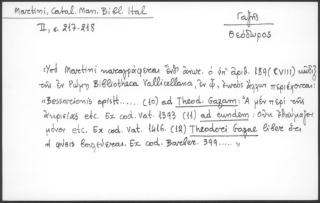 Martini, Catal. Man. Bibl. Ital
II, σ. 217-218
Γαζῆς
Θεόδωρος
Ὑπὸ Martini καταγράφεται ὁ ὑπ' ἀριθ. 189 (CVIII) κῶδιξ
τῆς ἐν Ρώμῃ Bibliotheca Vallicellana, ἐν ᾧ, ἐκτὸς ἄλλων περιέχονται:
«Bessarionis epist...... (10) ad Theod. Gazam: Ἃ μὲν περὶ τῆς
etc. Ex cod. Vat. 1393 (11) ad eundem: οὐκ
μόνον etc. Ex cod. Vat. 1416. (12) Theodori Gazae liber ὅτι
ἡ φύσις βουλεύεται. Ex cod. Barber. 399..... »